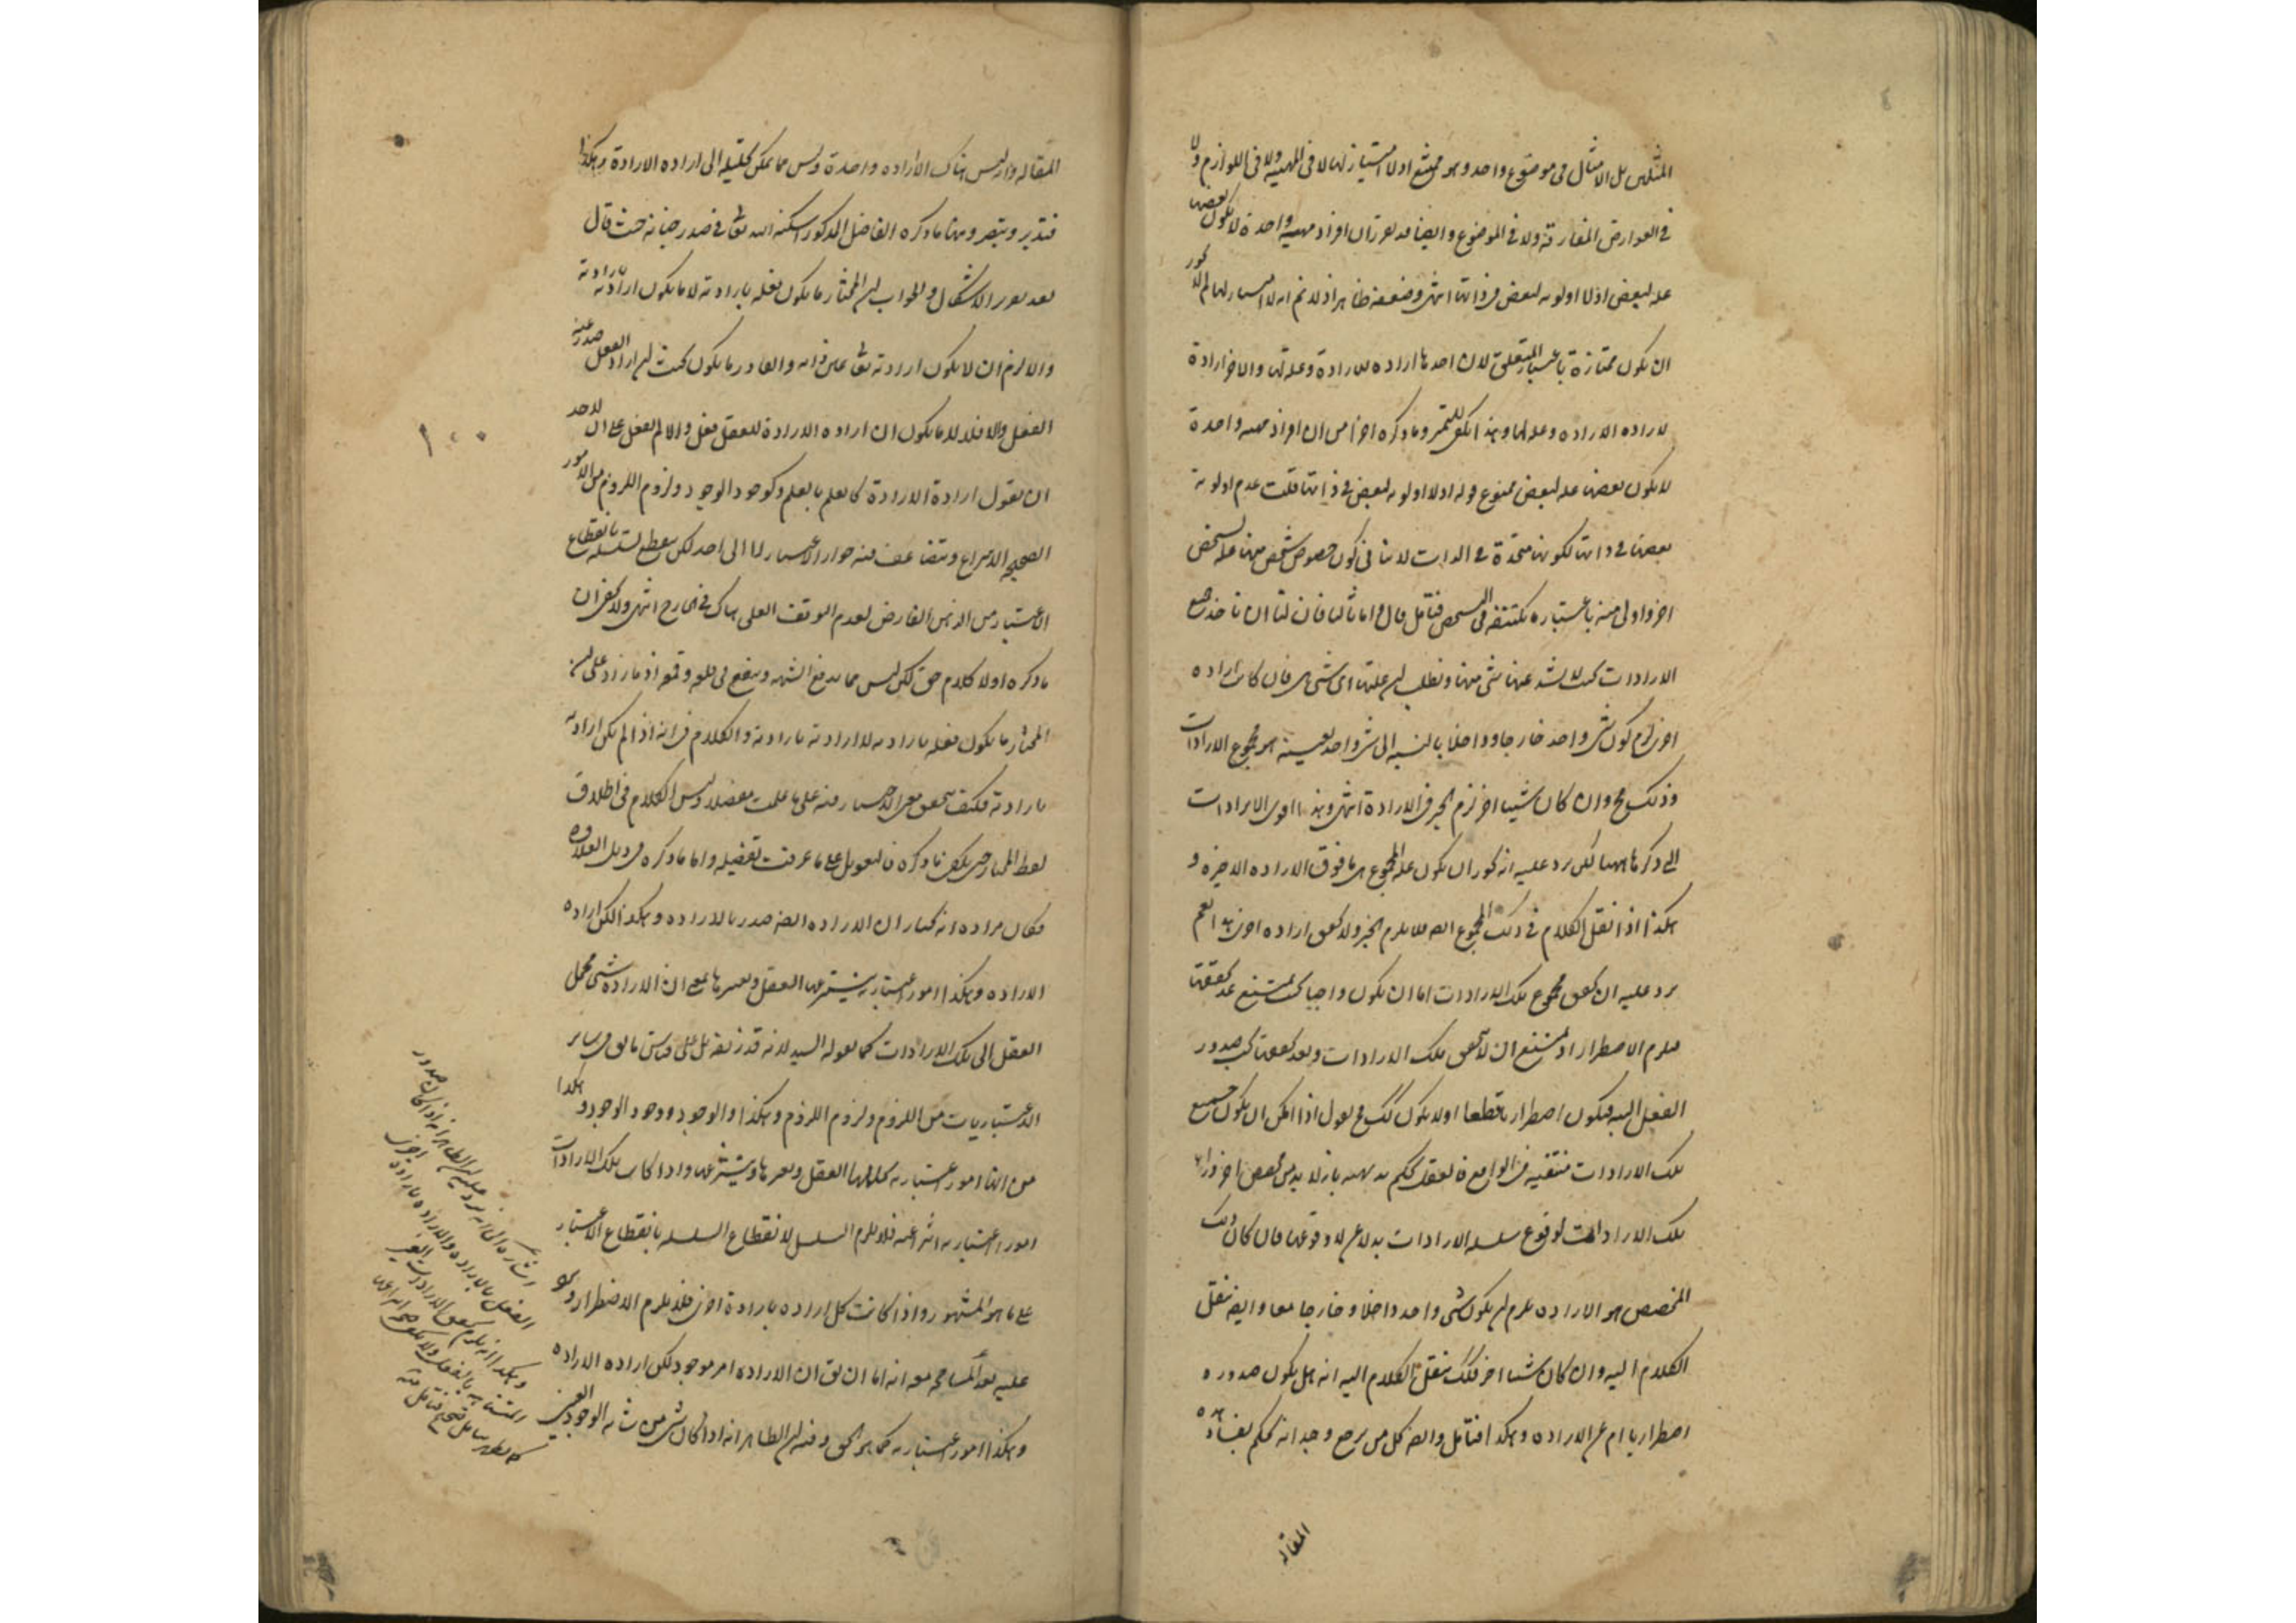 المثلين بل الامثال في موضوع واحد وهو ممتنع اذ لا امتياز لها لا في المهية ولا في اللوازم ولا
في العوارض المفارقة ولا في الموضوع وايضا قد تقرر ان افراد مهية واحدة لا يكون بعضها
علة لبعض اذ لا اولوية لبعض في ذاتها انتهى وضعفه ظاهر اذ لا نم انه لا امتياز لها لم لا يجوز
ان يكون ممتازة باعتبار المتعلق لان احدها ارادة للارادة وعلة لها والاخر ارادة
لارادة الارادة وعلة لها وهذا يكفي للتميز وما ذكره اخرا من ان افراد مهية واحدة
لا يكون بعضها علة لبعض ممنوع قوله اذ لا اولوية لبعض في ذاتها قلت عدم اولوية
بعضها في ذاتها لكونها متحدة في الذات لا ينافي كون خصوص شخص منها علة لشخص
اخر واولى منه باعتبار ما يكتنفه في التشخص فتامل قال واما ثالثا فان لنا ان ناخذ جميع
الارادات بحيث لا يشذ عنها شئ منها ونطلب ان علتها اي شئ هي فان كانت ارادة
اخرى لزم كون شئ واحد خارجا وداخلا بالنسبة الى شئ واحد بعينه هو مجموع الارادات
وذلك مح وان كان شيئا اخر لزم الجبر في الارادة انتهى وهذا اقوى الايرادات
التي ذكرها ههنا لكن يرد عليه انه يجوز ان يكون علة المجموع هي ما فوق الارادة الاخيرة و
هكذا اذا نقل الكلام في ذلك المجموع ايضا فلا يلزم الجبر ولا تحقق ارادة اخرى نعم
يرد عليه ان تحقق مجموع تلك الارادات اما ان يكون واجبا بحيث يمتنع عدم تحققها
فيلزم الاضطرار اذ يمتنع ان لا تحقق تلك الارادات وبعد تحققها يجب صدور
الفعل البتة فيكون اضطراريا قطعا او لا يكون كذلك فح نقول اذا امكن ان يكون جميع
تلك الارادات منتفية في الواقع فالعقل يحكم بديهة بانه لا بد من مخصص اخر وراء
تلك الارادات لوقوع سلسلة الارادات بدلا عن لا وقوعها فان كان ذلك
المخصص هو الارادة يلزم ان يكون شئ واحد داخلا وخارجا معا وايضا ننقل
الكلام اليه وان كان شيئا اخر فكذلك ننقل الكلام اليه انه هل يكون صدوره
اضطراريا ام عن الارادة وهكذا فتامل وايضا كل من يرجع وجدانه يحكم بفساد هذه
المقالة
المقالة واذ ليس هناك الا ارادة واحدة وليس مما يمكن تحليله الى ارادة الارادة وهكذا
فتدبر وتبصر ومنها ما ذكره الفاضل المذكور اسكنه الله تعالى في صدر جنانه حيث قال
بعد تقرير الاشكال والجواب ان المختار ما يكون فعله بارادته لا ما يكون ارادته بارادته
والا لزم ان لا يكون ارادته تعالى عين ذاته والقادر ما يكون بحيث ان اراد الفعل صدر عنه
الفعل والا فلا لا ما يكون ان اراد الارادة للفعل فعل والا لم يفعل على ان لاحد
ان يقول ارادة الارادة كالعلم بالعلم وكوجود الوجود ولزوم اللزوم من الامور
الصحيحة الانتزاع ويتضاعف فيه جواز الاعتبار لا الى حد لكن ينقطع السلسلة بانقطاع
الاعتبار من الذهن الفارض لعدم التوقف العلي هناك في الخارج انتهى ولا يخفى ان
ما ذكره اولا كلام حق لكن ليس مما يدفع الشبهة وينفع في قلع وقمع اذ ما زاد على ان
المختار ما يكون فعله بارادته لا ارادته بارادته والكلام في انه اذا لم يكن ارادته
بارادته فكيف يتحقق معنى الاختيار فيه على ما علمت مفصلا وليس الكلام في اطلاق
لفظ المختار حتى يكفي ما ذكره فالتعويل على ما عرفت تفصيله واما ما ذكره في ذيل العلاوة
فكان مراده انه يختار ان الارادة ايضا صدر بالارادة وهكذا لكن ارادة
الارادة وهكذا امور اعتبارية ينتزعها العقل ويعتبرها بمعنى ان الارادة شئ يحلل
العقل الى تلك الارادات كما يقوله السيد لانه قد زيفه بل على قياس ما يق في سائر
الاعتباريات من اللزوم ولزوم اللزوم وهكذا والوجود ووجود الوجود وهكذا
من انها امور اعتبارية يحللها العقل ويعتبرها وينتزعها واذا كانت تلك الارادات
امورا اعتبارية انتزاعية فلا يلزم التسلسل لانقطاع السلسلة بانقطاع الاعتبار
على ما هو المشهور واذا كانت كل ارادة بارادة اخرى فلا يلزم الاضطرار ويرد
عليه بعد المسامحة معه انه اما ان يق ان الارادة امر موجود لكن ارادة الارادة
وهكذا امور اعتبارية كما هو الحق وفيه ان الظاهر انه اذا كان شئ من شانه الوجود العيني
١٠٠